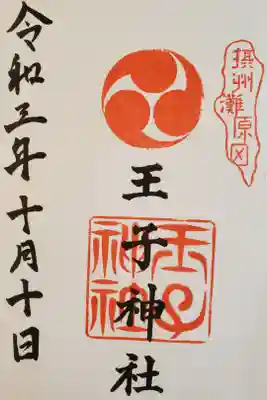 摂州
灘原田
王子神社
王子
神社
令和三年十月十日